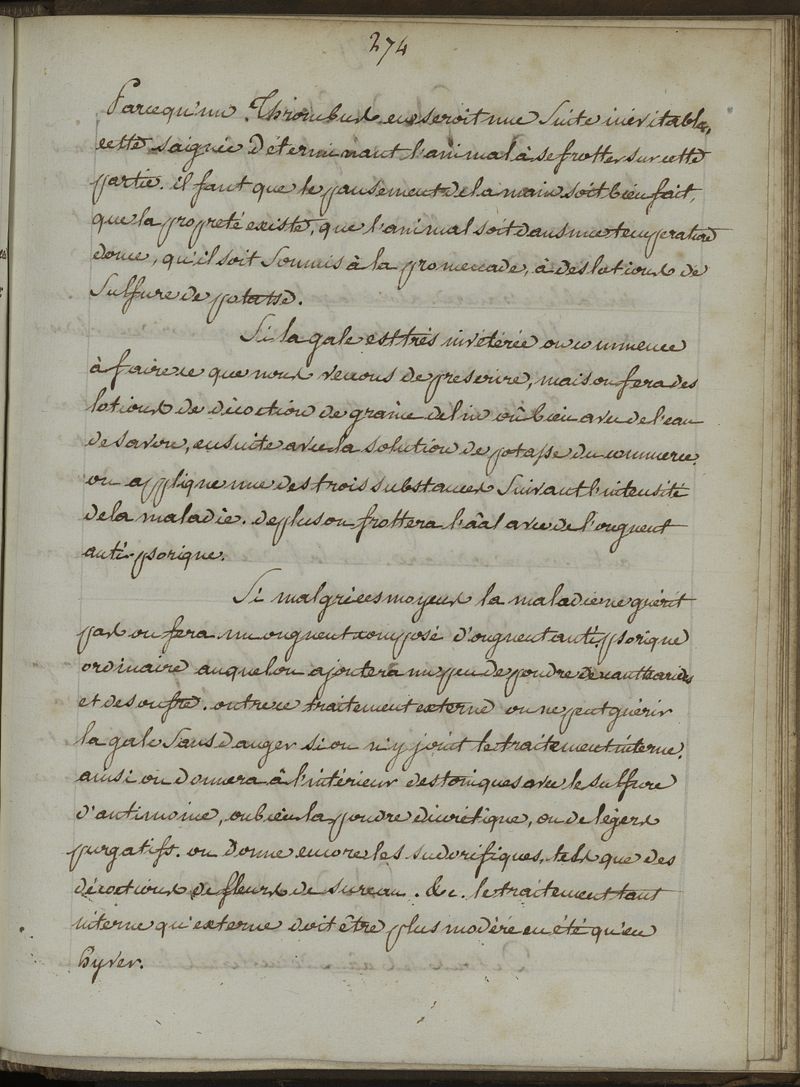 274
Parcequ'un Thrombus en seroit une suite inévitable,
cette saignée déterminant l'animal à se frotter sur cette
partie. il faut que le pansement de la main soit bien fait,
que la propreté existe, que l'animal soit dans une temperature
douce, qu'il soit soumis à la promenade, à des lotions de
Sulfure de potasse.
Si la gale est très invétérée on commence
à faire ce que nous venons de prescrire, mais on fera des
lotions de décoction de graine de lin où bien avec de l'eau
de savon, ensuite avec la solution de potasse du commerce.
on applique une des trois substances suivant l'intensité
de la maladie. de plus on frottera l'âal avec de l'onguent
anti-psorique.
Si malgré ces moyens la maladie ne guérit
pas on fera un onguent composé d'onguent anti-psorique
ordinaire auquel on ajoutera un peu de poudre de cantharides
et de soufre. outre ce traitement externe on ne peut guérir
la gale sans danger si on n'y joint le traitement interne.
ainsi on donnera à l'intérieur des toniques avec le sulfure
d'antimoine, ou bien la poudre diurétique, ou de légers
purgatifs. on donne encore les sudorifiques, tels que des
décoctions de fleurs de sureau. &c. le traitement tant
interne qu'externe doit être plus modéré en été qu'en
hyver.